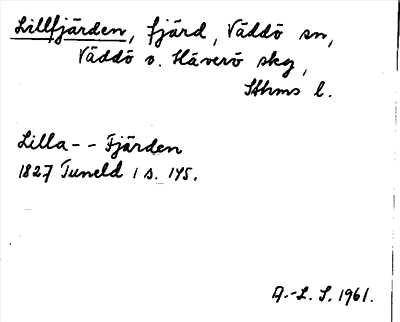 Lillfjärden, fjärd, Väddö sn,
Väddö o. Häverö skg,
Sthms l.
Lilla - - Fjärden
1827 Tuneld 1 s. 145.
A.-L. S. 1961.